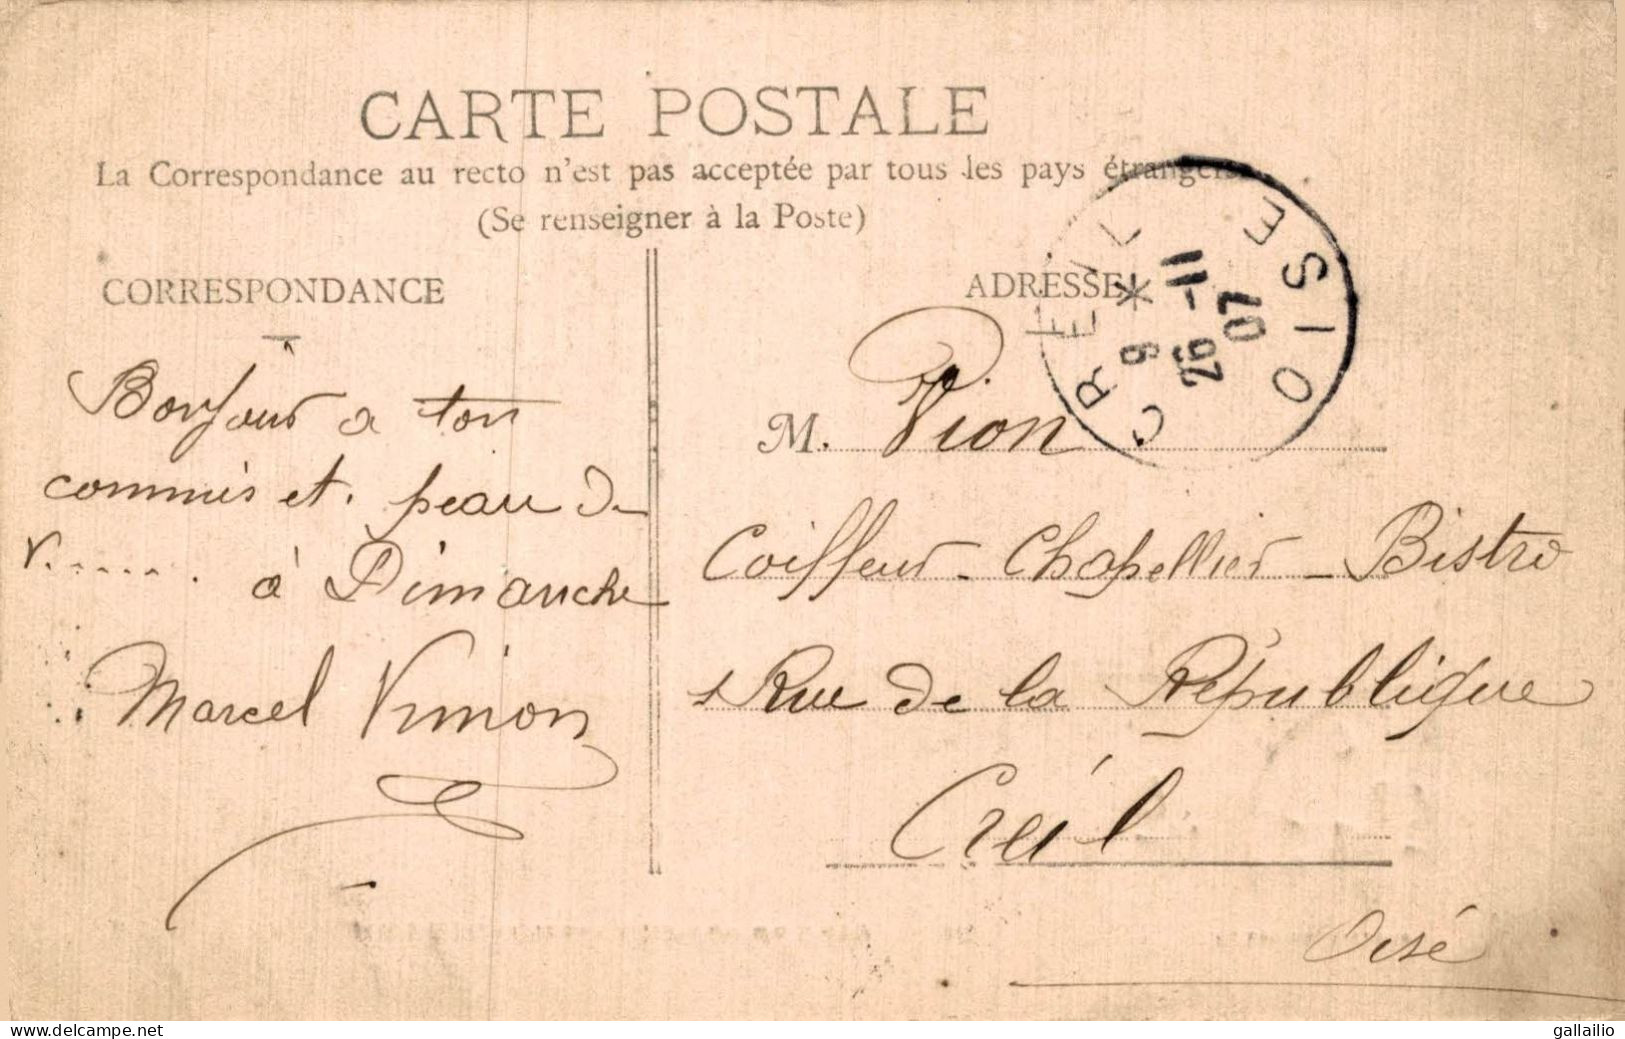 CARTE POSTALE
La Correspondance au recto n'est pas acceptée par tous les pays étrangers
(Se renseigner à la Poste)
CORRESPONDANCE
Bonjour a ton
commis et. peau de
V...... à Dimanche
Marcel Vimon
ADRESSE
CREIL * OISE
9
26 -11
07
M. Vion
Coiffeur - Chapellier - Bistro
Rue de la République
Creil
Oise
www.delcampe.net
gallailio